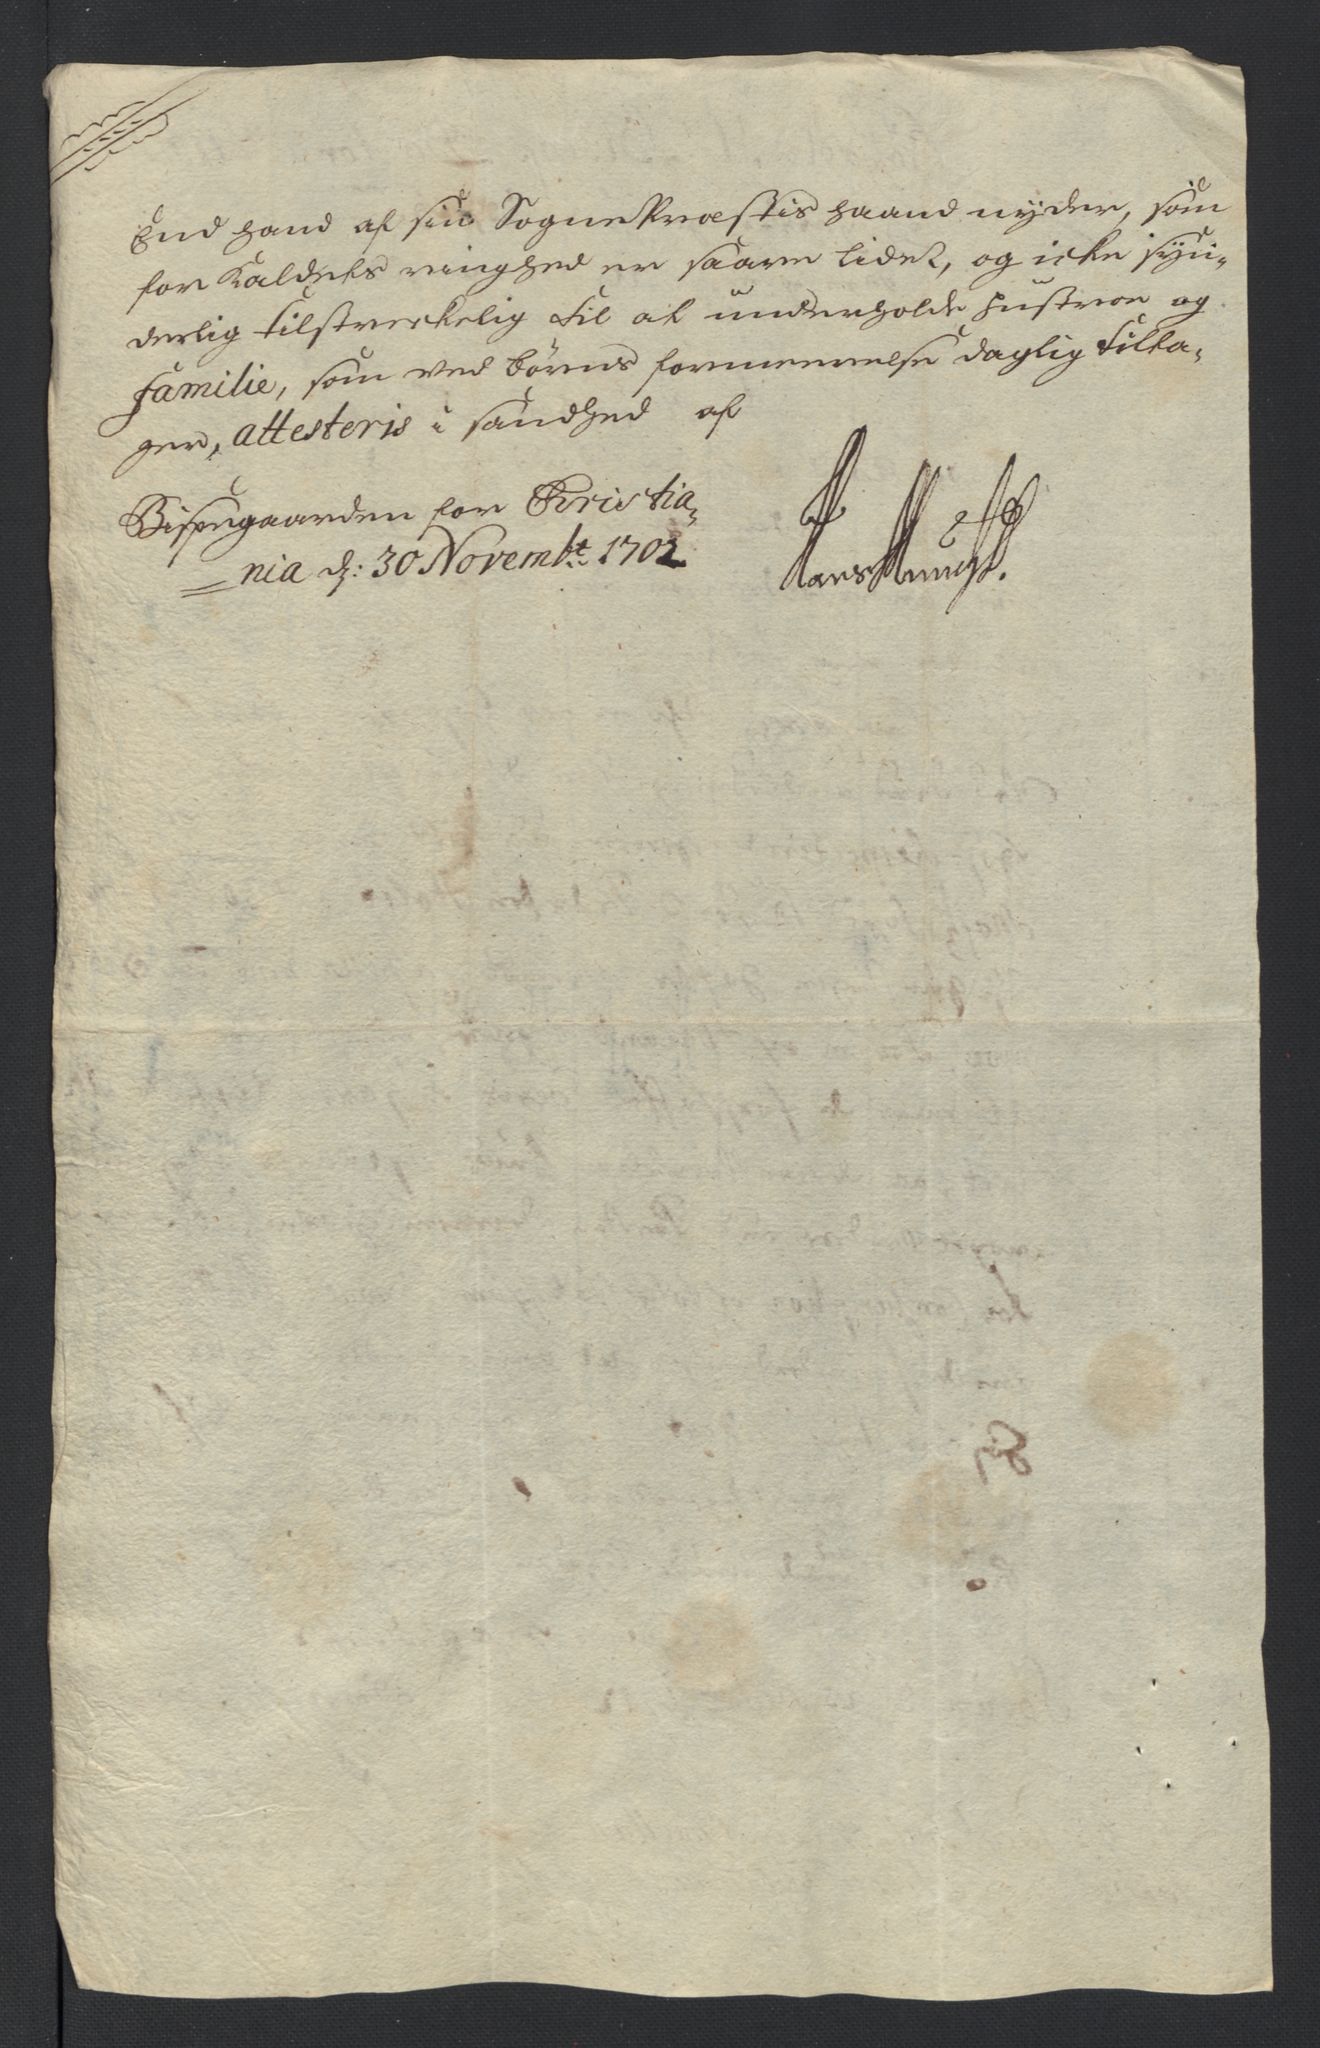 End hand af sin SognePræstis haand nyder, som
for Kaldets ringhed er saare lidet, og icke syn-
derlig tilstreckelig til at underholde Hustroe og
Familie, som ved börns formeerelse daglig tilta-
ger, attesteris i sandhed af
Bispegaarden for Christia-
nia d: 30 Novembr. 1702
Hans Munch.